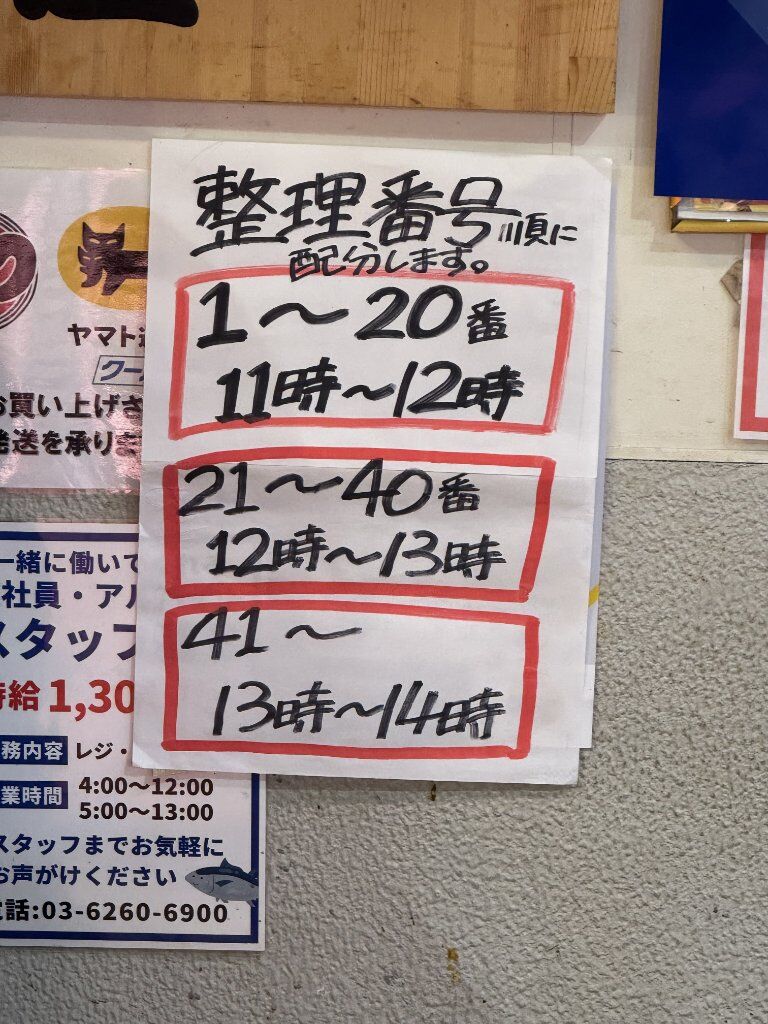 整理番号順に
配分します。
1～20番
11時～12時
21～40番
12時～13時
41～
13時～14時
ヤマト
クー
お買い上げさ
発送を承りま
一緒に働いて
社員・アル
スタッフ
時給1,30
務内容 レジ・
業時間 4:00～12:00
5:00～13:00
スタッフまでお気軽に
お声がけください
電話:03-6260-6900